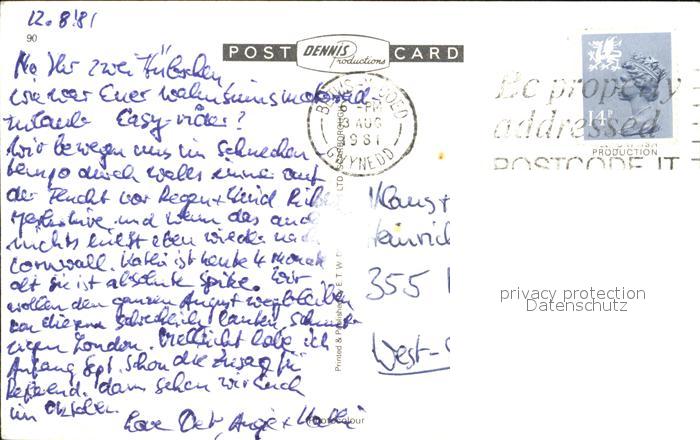 12.8.'81
90
POST DENNIS Productions CARD
Na Ihr zwei Hübschen
wie war Euer Wahnsinnsmotorrad-
urlaub Easy-rider?
Wir bewegen uns im Schnecken
tempo durch Wales immer auf
der Flucht vor Regen + Wind Richtung
und wenn das auch
nichts hilft eben wieder nach
Cornwall. Kathi ist heute 4 Monate
alt sie ist absolute Spitze. Wir
wollen den ganzen August wegbleiben
von diesem
London. Vielleicht habe ich
Anfang Sept. schon die Zusage für
dann sehen wir Euch
im Oktober.
Love Det, Angie + Kathi
BETWS-Y-COED
6 PM
13 AUG
1981
GWYNEDD
Be properly
addressed
POSTCODE IT
14P
PRODUCTION
Klaus +
Heinrich
355
West-
privacy protection
Datenschutz
Printed & Published by E.T.W. DENNIS LTD. SCARBOROUGH
Photocolour